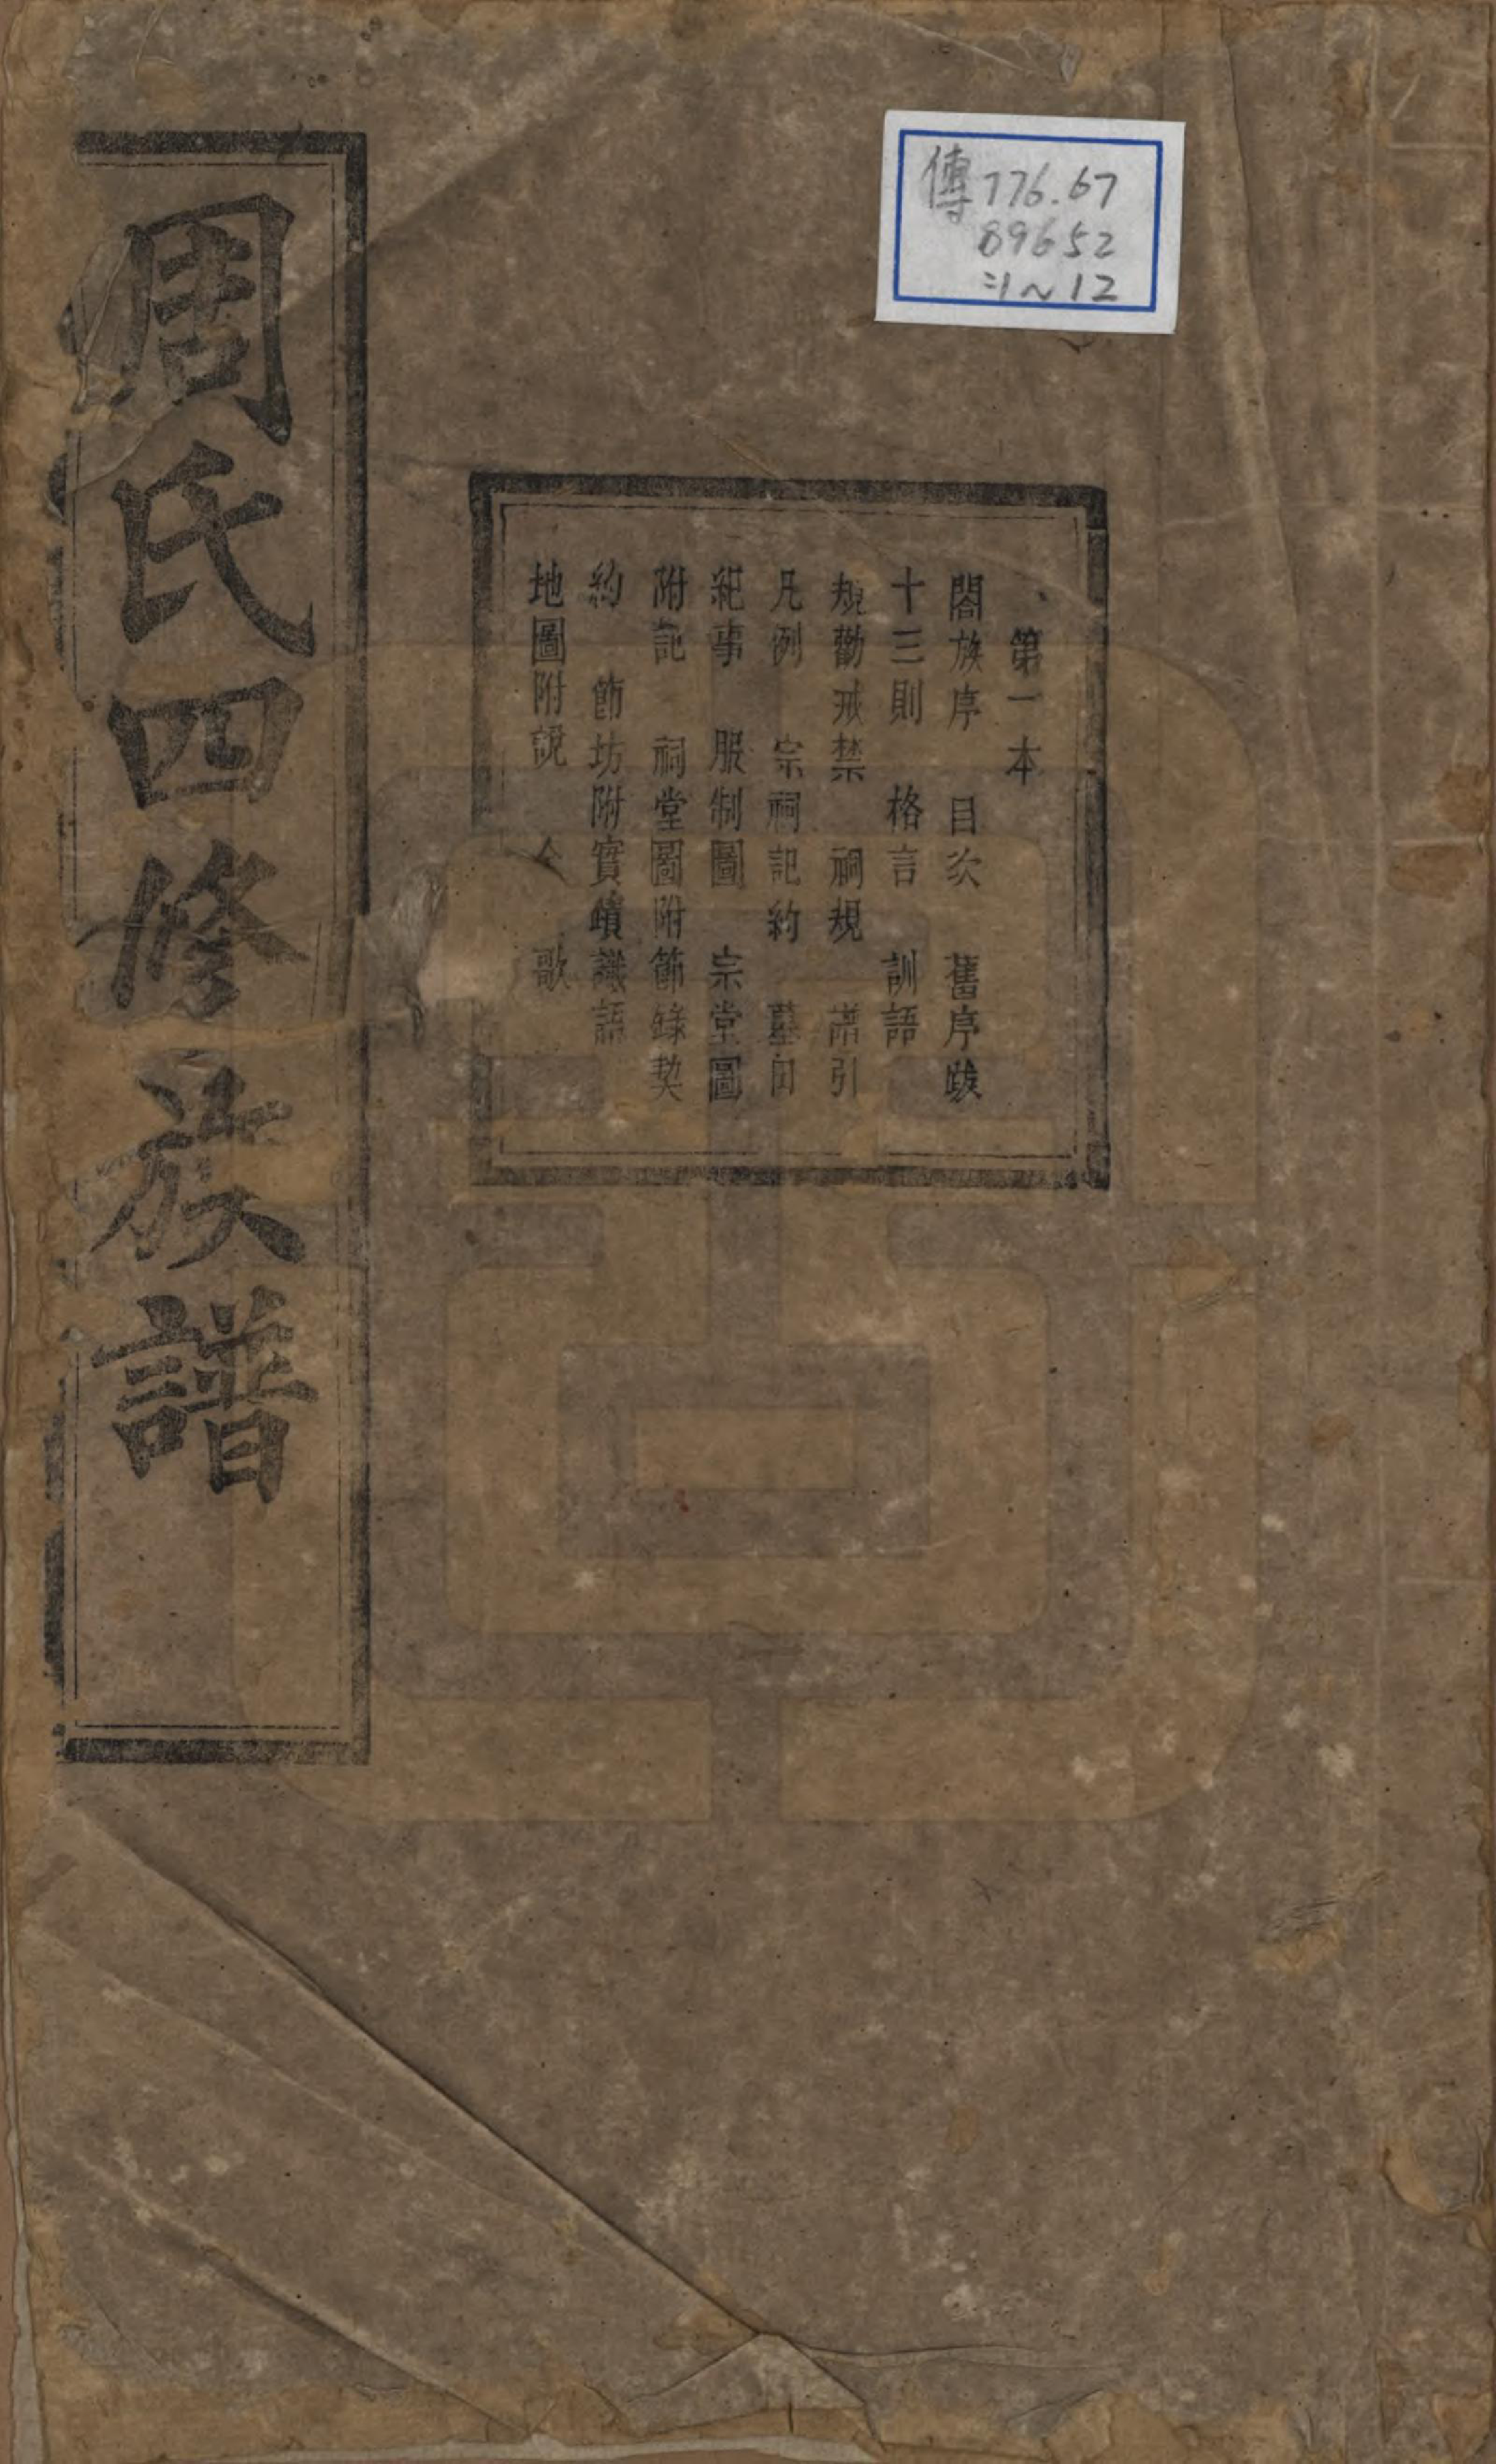 傳776.67
89652
:1~12
第一本
閤族序 目次 舊序跋
十三則 格言 訓語
規勸戒禁 祠規 譜引
凡例 宗祠記約 墓図
紀事 服制圖 宗堂圖
附記 祠堂圖附節錄契
約 節坊附實蹟讖語
地圖附說 仝 歌
周氏四修族譜